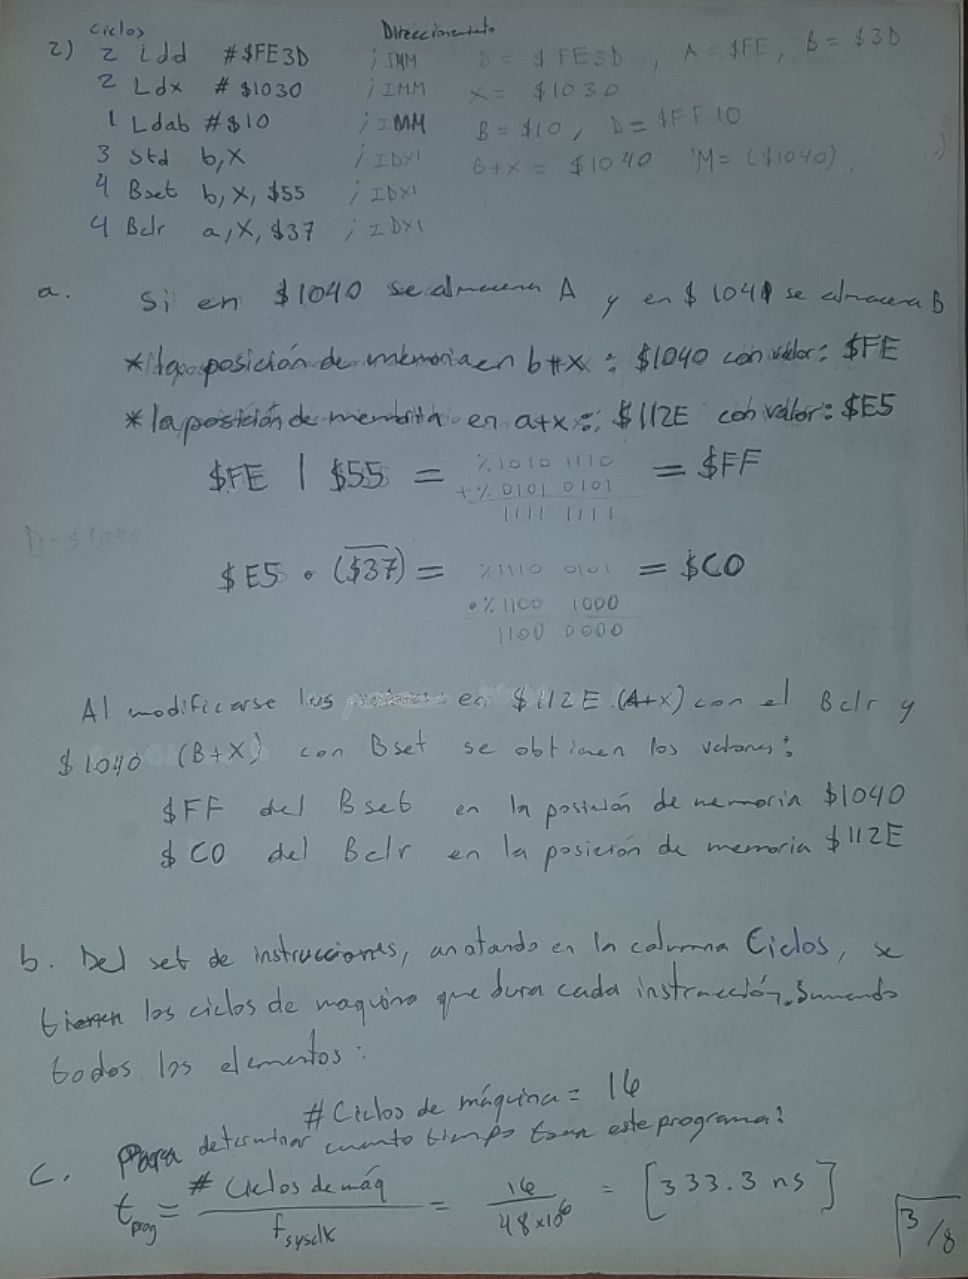 ciclos Direccionamiento
2) 2 Ldd #$FE3D ; IMM D = $FE3D , A = $FE, B = $3D
2 Ldx #$1030 ; IMM X = $1030
1 Ldab #$10 ; IMM B = $10 , D = $FE10
3 Std b,X ; IDX1 B+X = $1040 M = ($1040)
4 Bset b,X,$55 ; IDX1
4 Bclr a,X,$37 ; IDX1
a. Si en $1040 se almacena A y en $1041 se almacena B
* la posición de memoria en b+x : $1040 con valor: $FE
* la posición de memoria en a+x : $112E con valor: $E5
%1010 1110
$FE | $55 = +%0101 0101 = $FF
1111 1111
D = $1040
%1110 0101
$E5 • ($37) = •%1100 1000 = $C0
1100 0000
Al modificarse las en $112E (A+X) con el Bclr y
$1040 (B+X) con Bset se obtienen los valores:
$FF del Bset en la posición de memoria $1040
$C0 del Bclr en la posición de memoria $112E
b. Del set de instrucciones, anotando en la columna Ciclos, se
tienen los ciclos de maquina que dura cada instrucción. Sumando
todos los elementos:
# Ciclos de máquina = 16
c. Para determinar cuanto tiempo toma este programa:
t prog = # Ciclos de máq / f sysclk = 16 / 48x10⁶ = [333.3 ns]
3/8